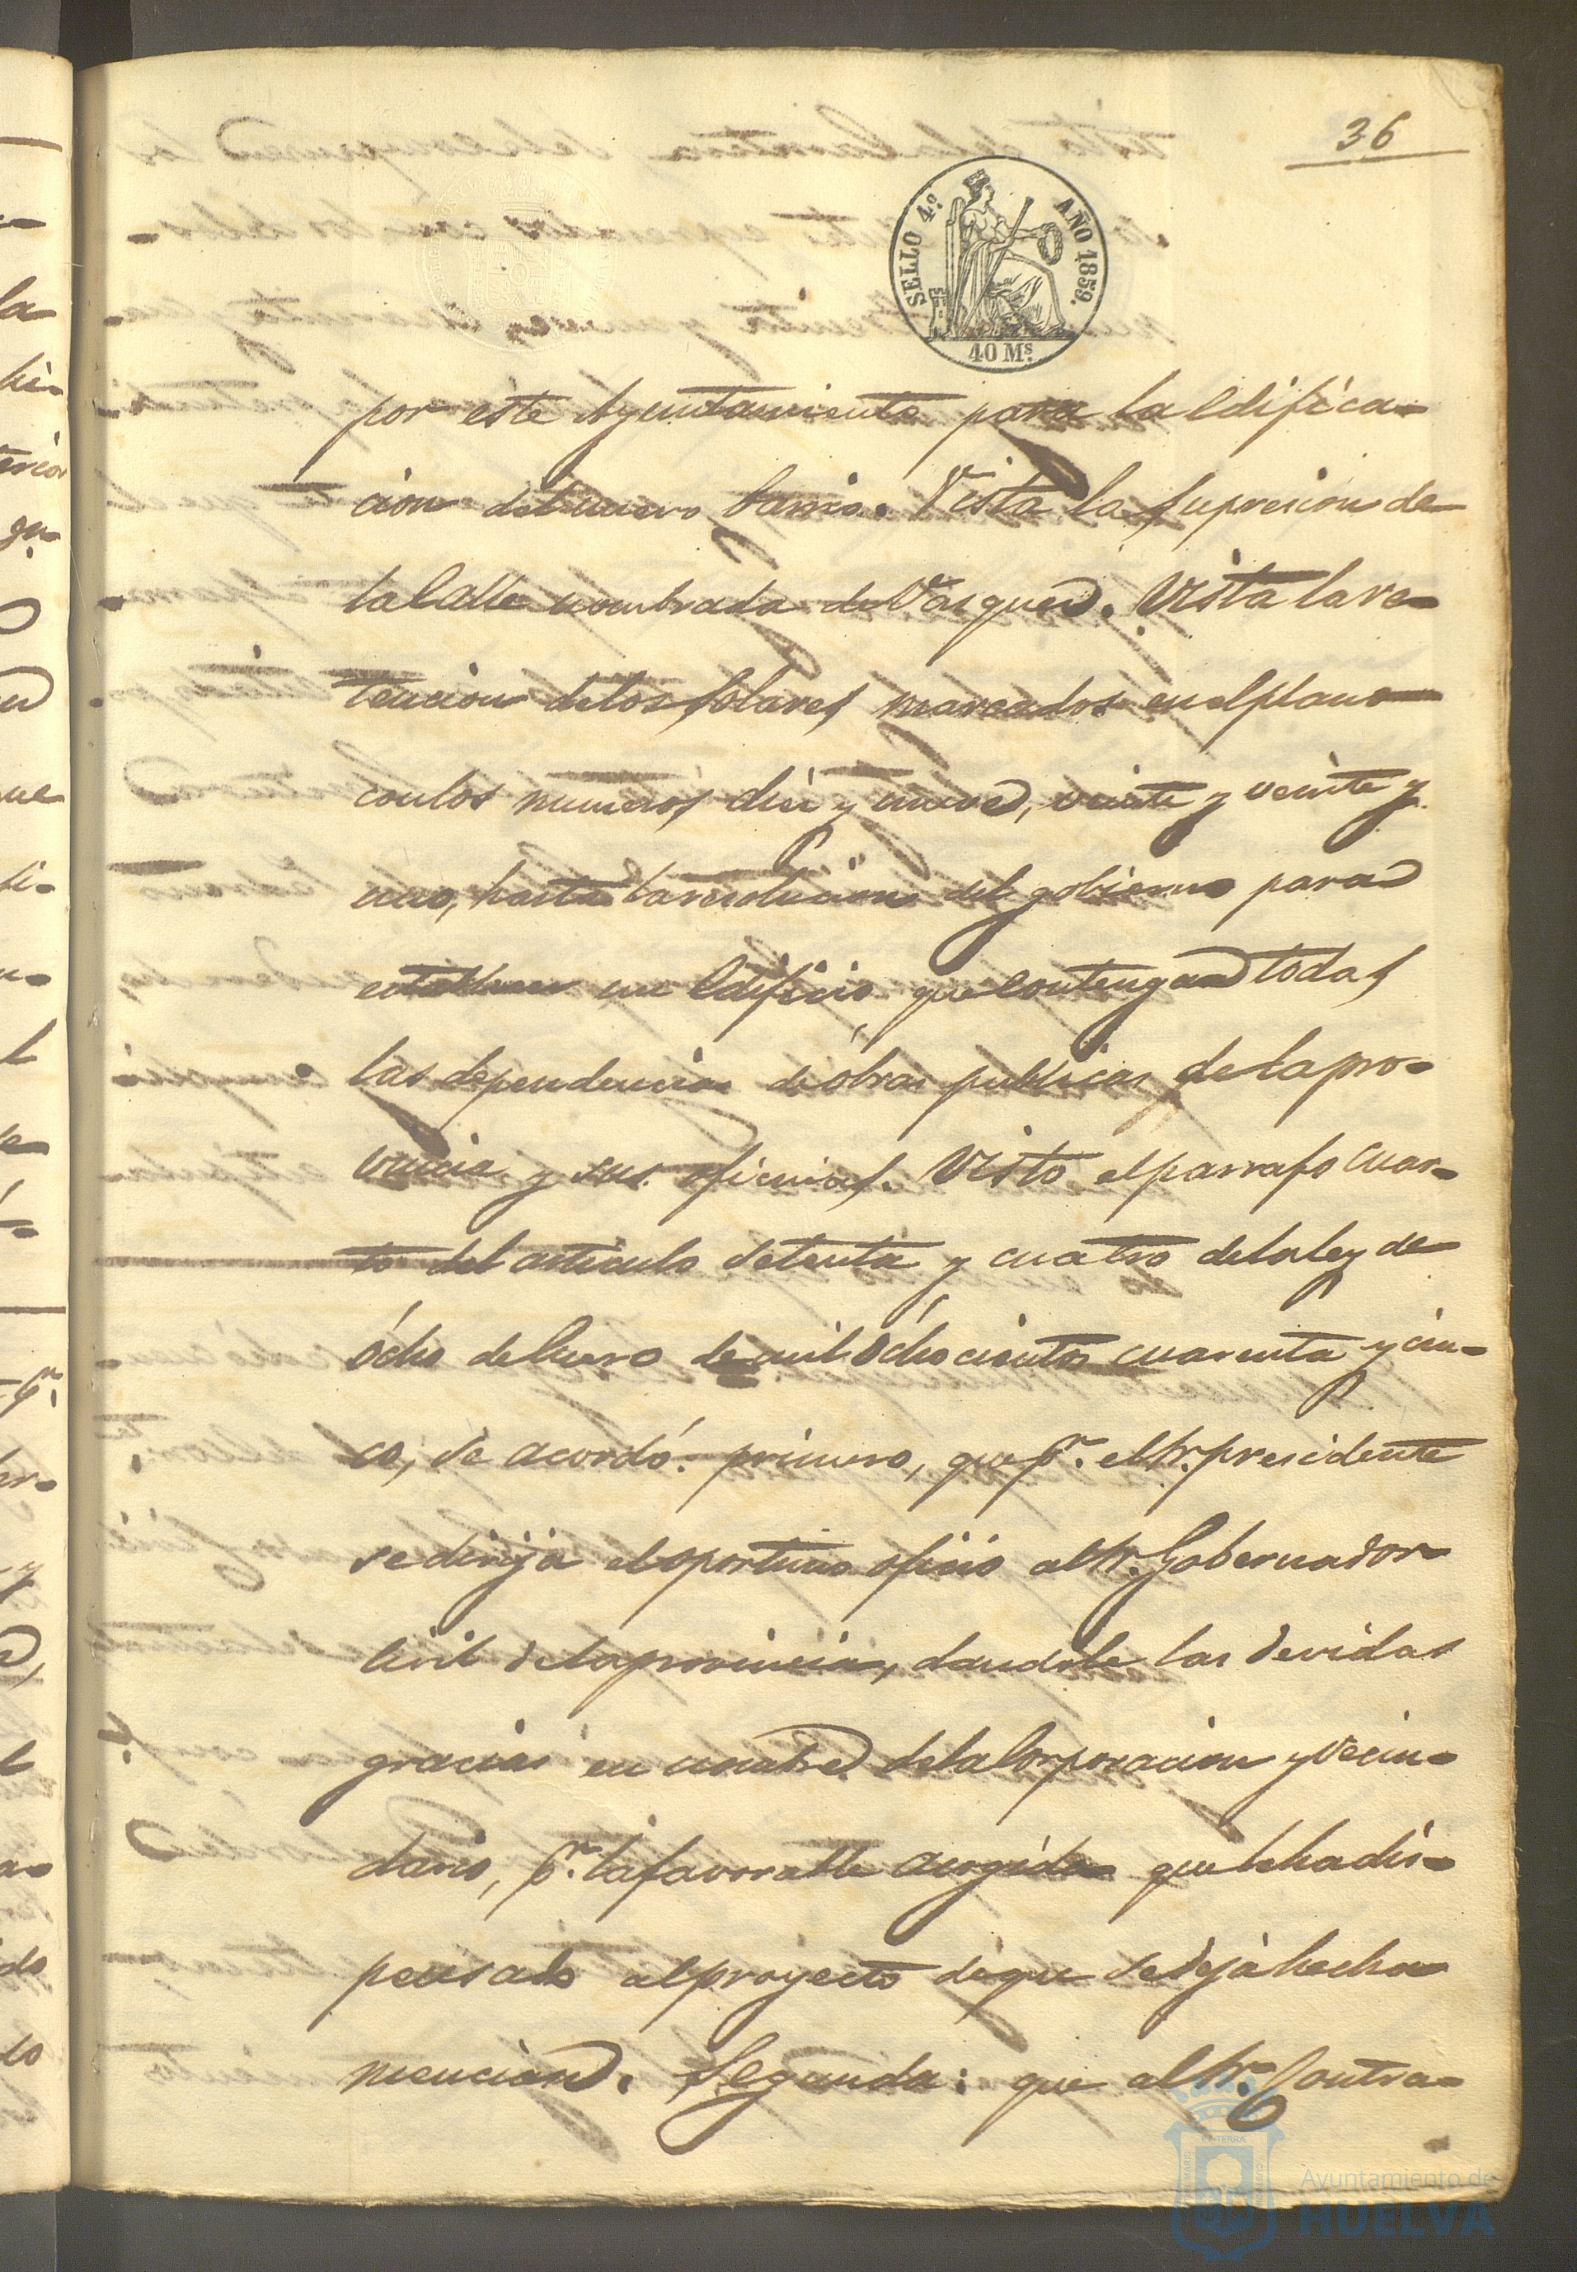 36
SELLO 4º. AÑO 1859.
40 Ms.
por este Ayuntamiento para la Edifica-
cion del nuevo barrio. Vista la supresion de
la Calle nombrada de Vasquez. Vista la re-
tencion de los solares marcados en el plano
con los numeros diez y nueve, veinte y veinte y
uno, hasta la resolucion del gobierno para
establecer un Edificio que contengan todas
las dependencias de óbras publicas de la pro-
vincia y sus oficinas. Visto el parrafo cuar-
to del articulo setenta y cuatro de la ley de
ócho de Enero de mil óchocientos cuarenta y cin-
co, se acordó: primero, que pr. el Sr. presidente
se dirija el oportuno oficio al Sr. Gobernador
Civil de la provincia, dandole las devidas
gracias en nombre de la Corporacion y vecin-
dario, pr. la favorable acogida que le ha dis-
pensado al proyecto de que se deja hecha
mencion. Segunda: que al Sr. Contra-
Ayuntamiento de
HUELVA